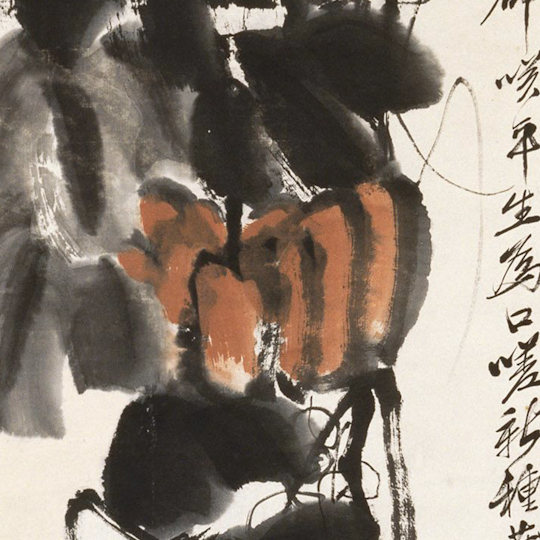 咲平生為口嗟新種